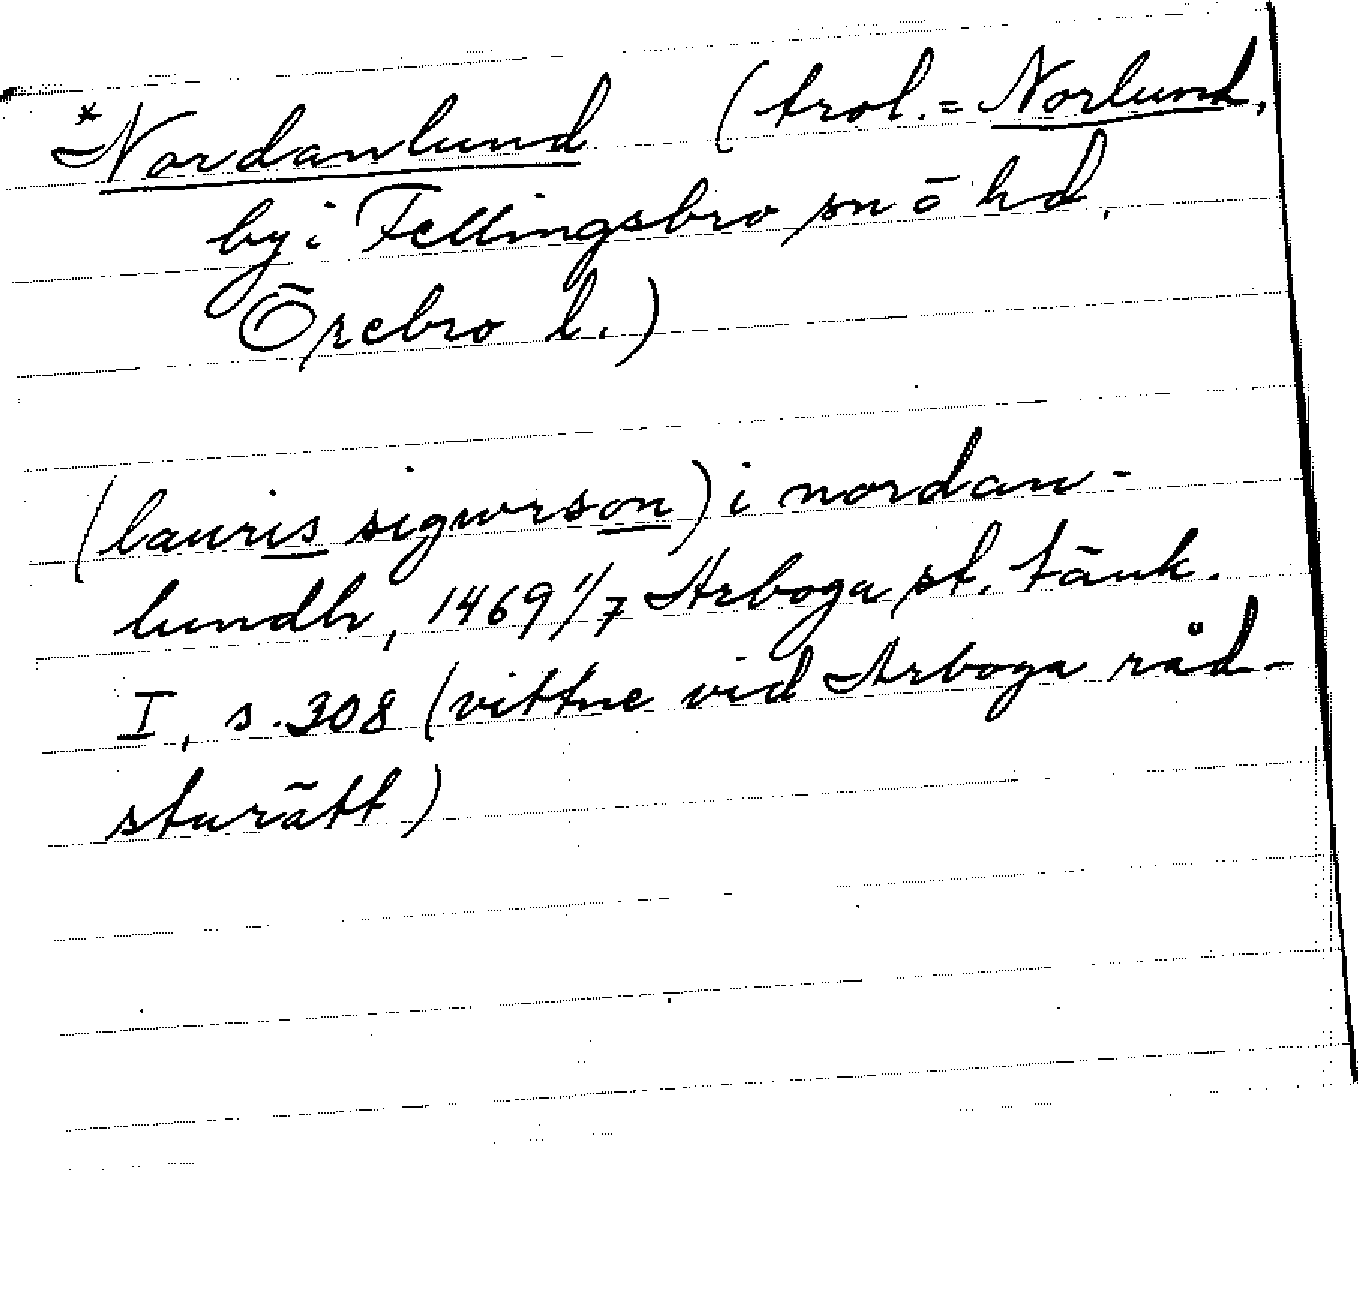 *Nordanlund (trol. = Norlund,
by i Fellingsbro sn o hd,
Örebro l.)
(lauris sigurson) i nordan-
lundh, 1469 1/7 Arboga st. tänk.
I, s. 308 (vittne vid Arboga råd-
sturätt)